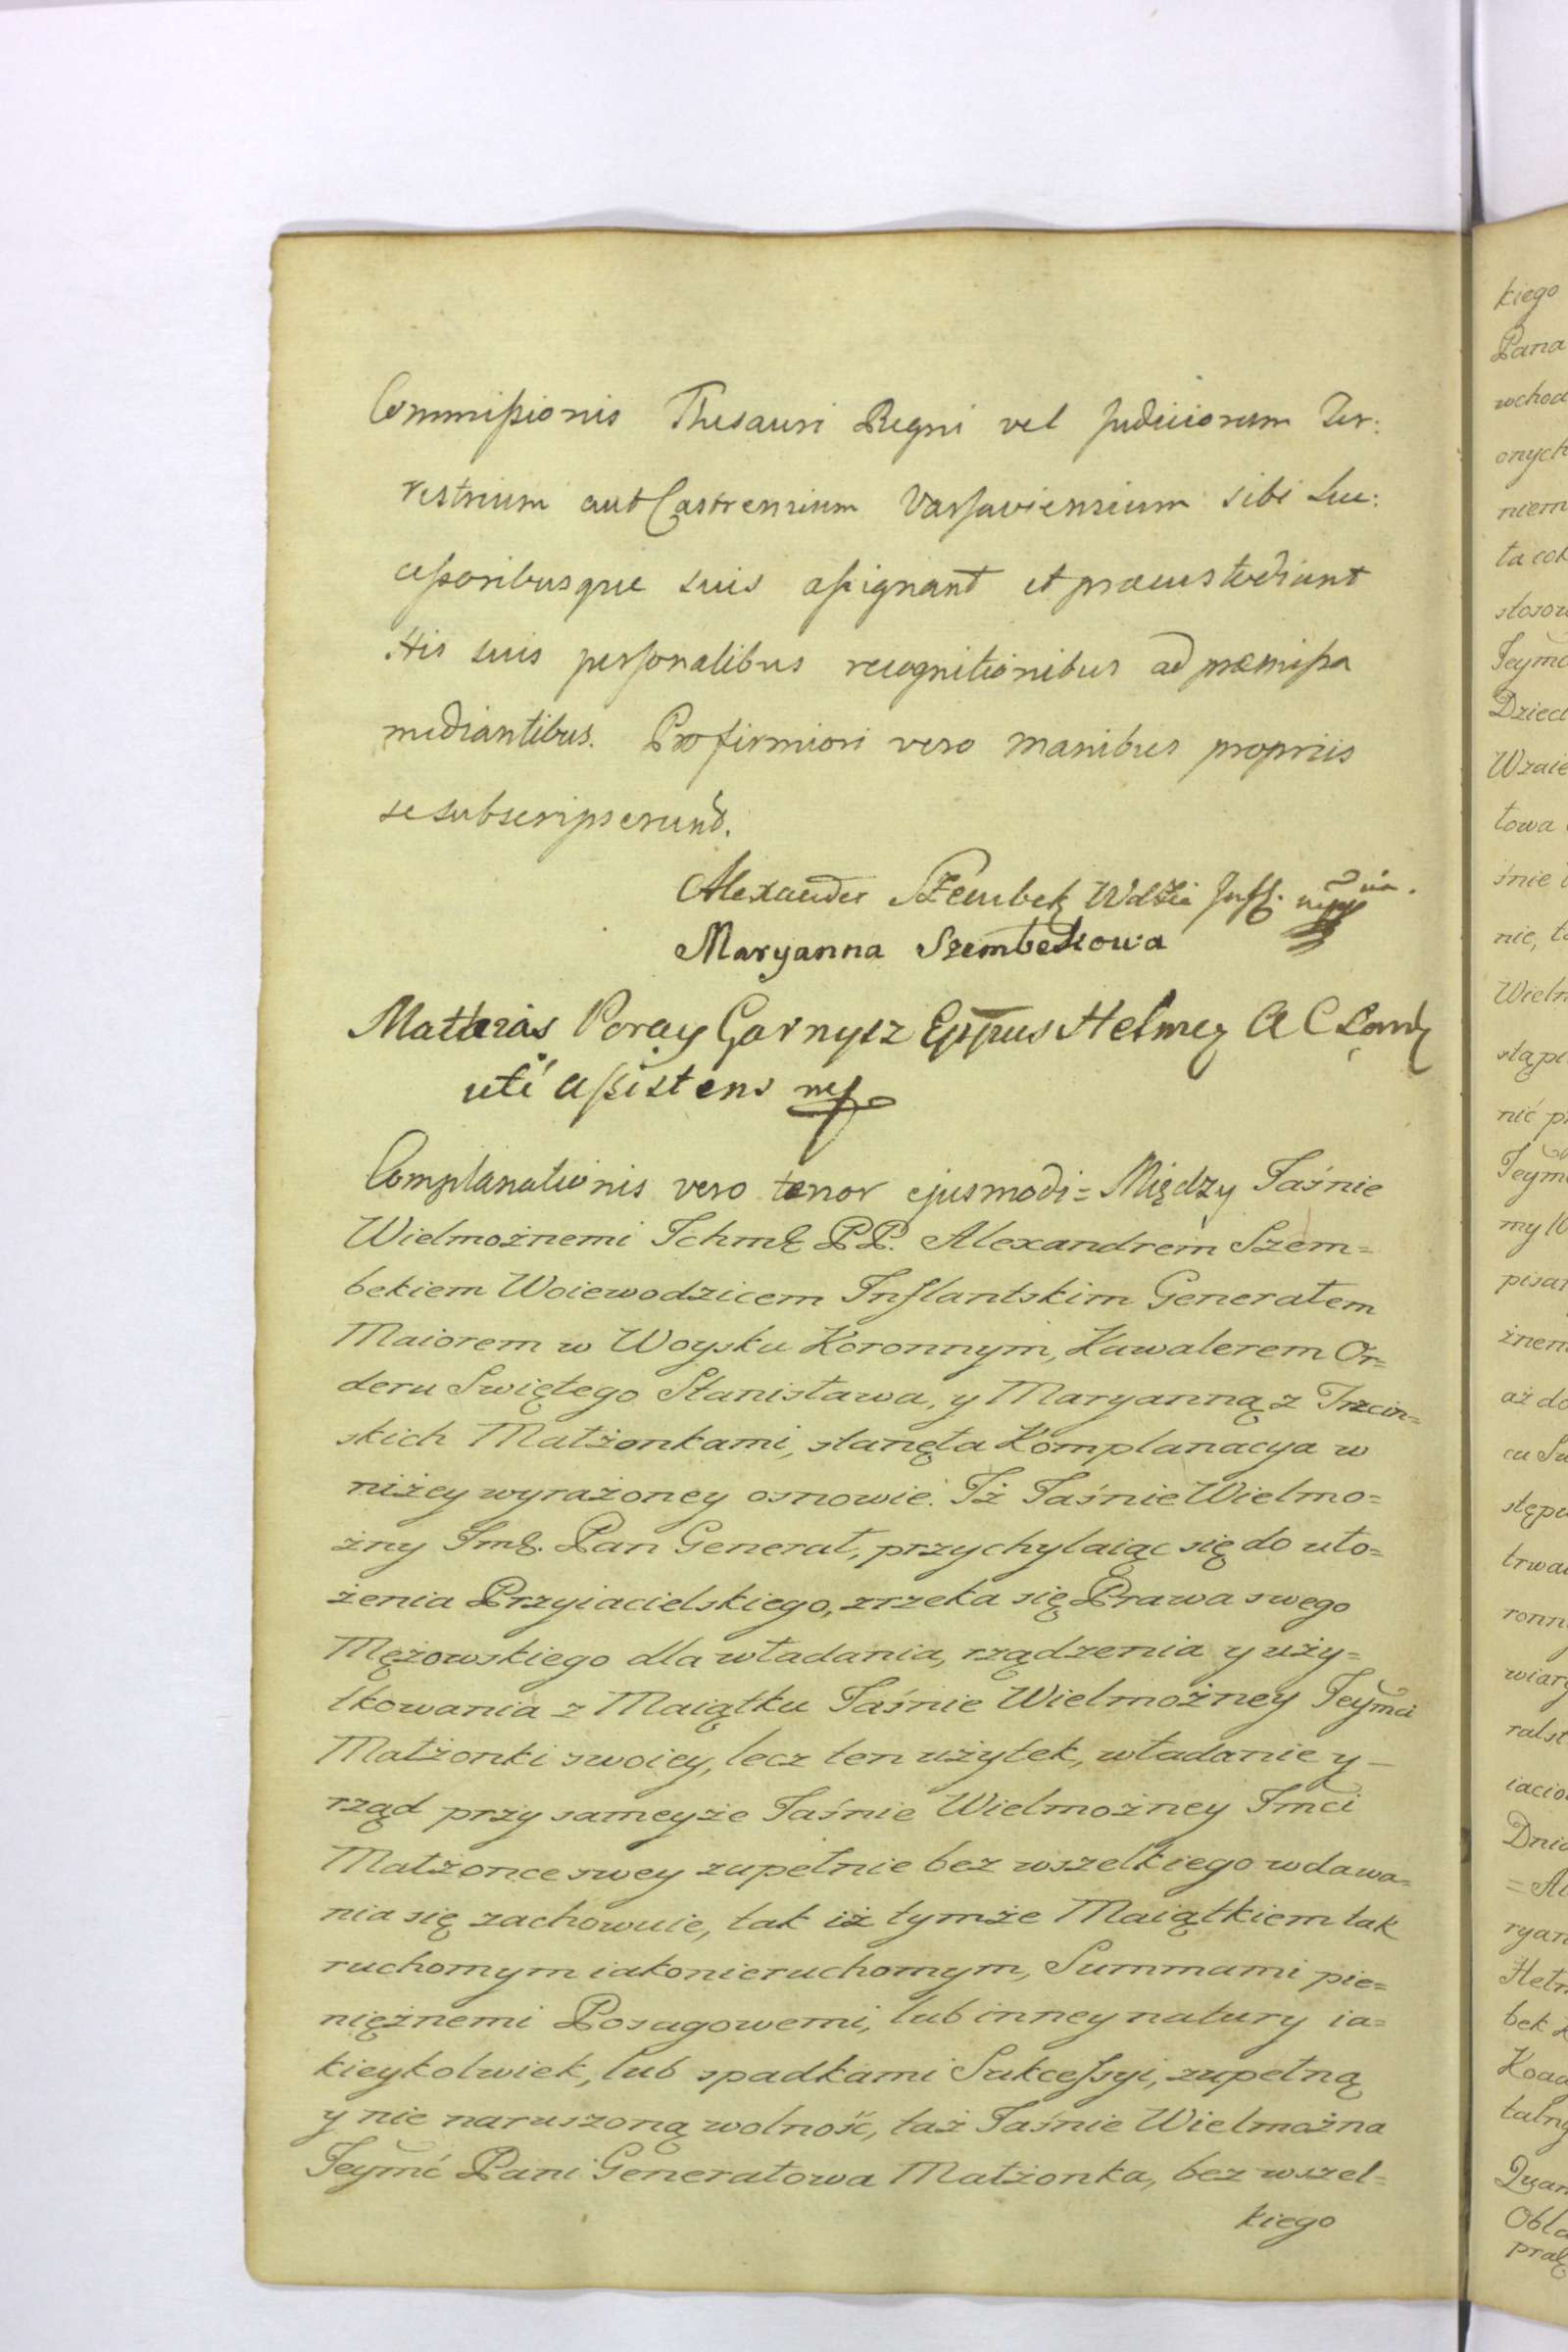 Commißionis Thesauri Regni vel Judiciorum Ter:
restrium aut Castrensium Varsaviensium sibi Suc:
ceßoribusque suis aßignant et praecustodiunt
His suis personalibus recognitionibus ad præmißa
mediantibus. Pro firmiori vero manibus propriis
se subscripserunt.
Alexander Szembek Wdzic Infl.
Maryanna Szembekowa
Mathias Poray Garnysz Eppus Helmeg A C
uti aßistens mp
Complanationis vero tenor ejusmodi = Między Jaśnie
Wielmożnemi Ichmć PP. Alexandrem Szem=
bekiem Woiewodzicem Inflantskim Generałem
Maiorem w Woysku Koronnym, Kawalerem Or=
deru Swiętego Stanisława, y Maryanną z Trzcin=
skich Małżonkami, stanęła Komplanacya w
niżey wyrażoney osnowie. Iż Jaśnie Wielmo=
żny Jmć. Pan Generał, przychylaiąc się do uło=
żenia Przyiacielskiego, zrzeka się Prawa swego
Mężowskiego dla władania, rządzenia y uży=
tkowania z Maiątku Jaśnie Wielmożney Jeymci
Małżonki swoiey, lecz ten użytek, władanie y –
rząd przy sameyże Jaśnie Wielmożney Jmci
Małżonce swey zupełnie bez wszelkiego wdawa=
nia się zachowuie, tak iż tymże Maiątkiem tak
ruchomym iako nieruchomym, Summami pie=
niężnemi Posagowemi, lub inney natury ia=
kieykolwiek, lub spadkami Sukceſsyi, zupełną
y nie naruszoną wolność, taż Jaśnie Wielmożna
Jeymć Pani Generałowa Małżonka, bez wszel=
kiego
kiego
Pana
onych
niem
Jeym
towa
śnie
nie,
Wielm
nić
Jeym
my
aż do
Dnia
bek